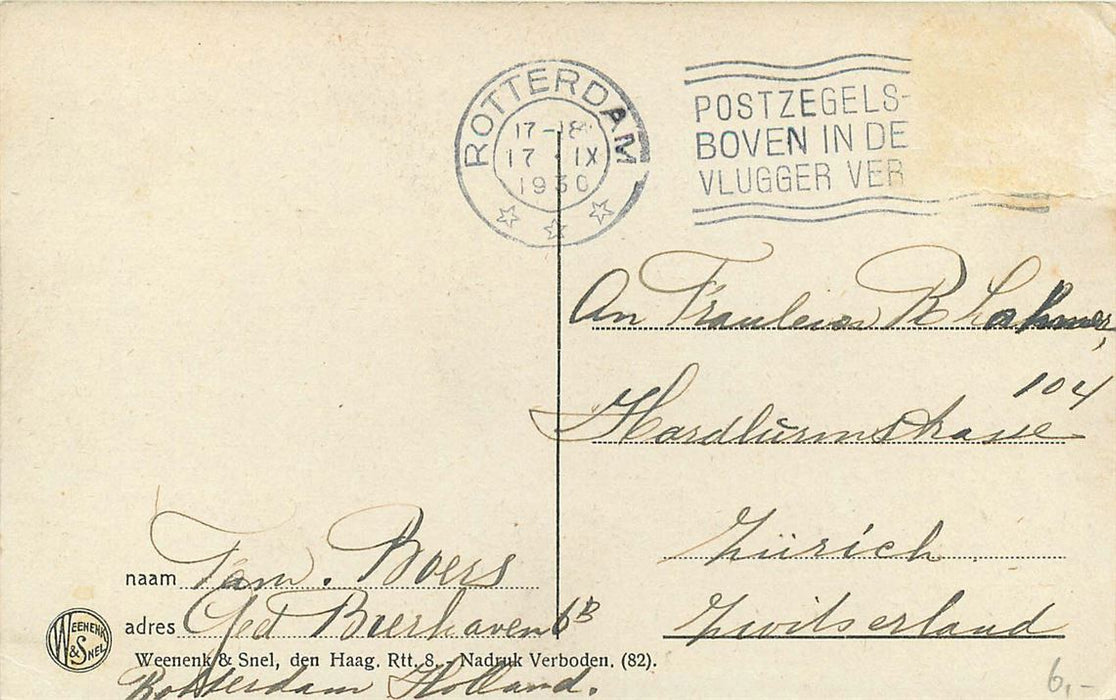 ROTTERDAM
17-18
17 · IX
1930
POSTZEGELS-
BOVEN IN DE
VLUGGER VER
An Fraulein R
104
Hardturmstrasse
Zürich
Zwitserland
naam Fam. Boers
adres Ged Bierhaven 6B
WEENENK
& SNEL
Weenenk & Snel, den Haag. Rtt. 8. - Nadruk Verboden. (82).
Rotterdam Holland.
6,-